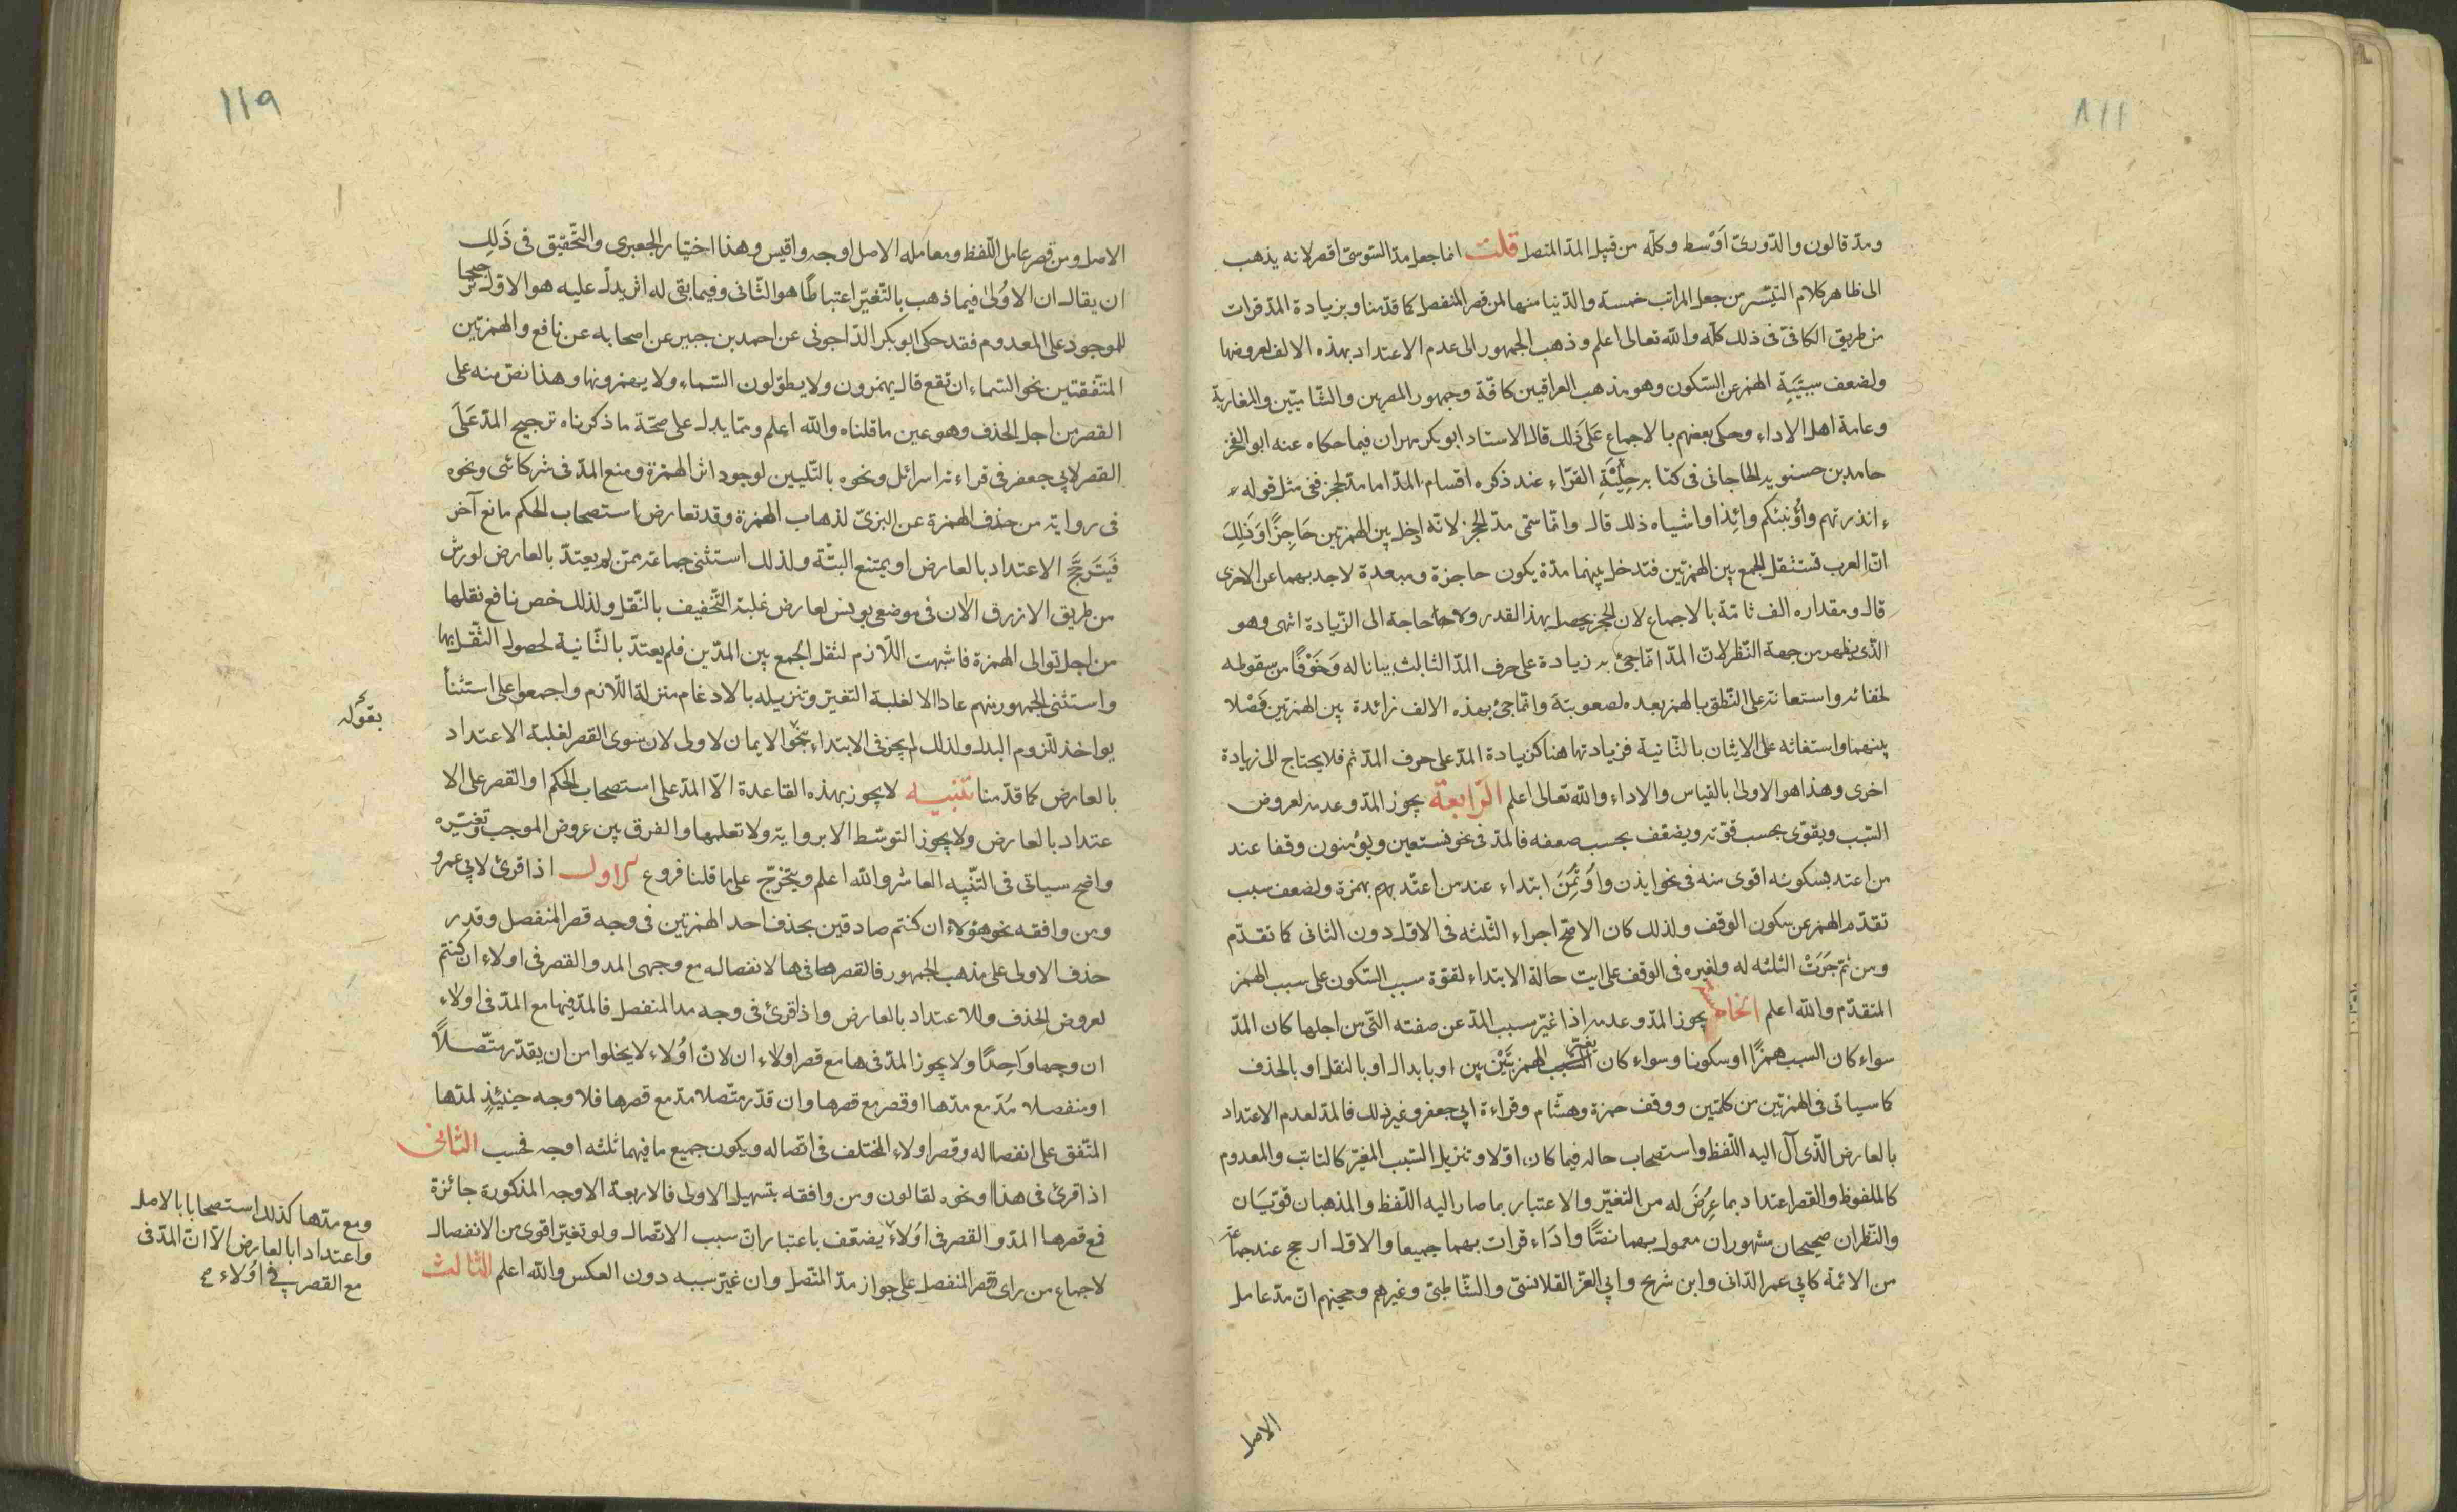 ١١٨
ومدّ قالون والدّورىّ اَوْسط وكلّه من قبيل المدّ المتصل قلت انما جعل مدّ السّوسىّ اقصر لانه يذهب
الى ظاهر كلام التّيسّر من جعل المراتب خمسة والدّنيا منها لمن قصر المنفصل كما قدّمنا وبزيادة المدّ قرات
من طريق الكافىّ فى ذلك كلّه والله تعالى اعلم وذهب الجمهور الى عدم الاعتداد بهذه الالف لعروضها
ولضعف سببيّةِ الهمز عن السّكون وهو مذهب العراقيين كافّة وجمهور المصرين والشّاميّين والمغاربة
وعامة اهل الاداء وحكى بعضهم بالاجماع عَلَى ذَلك قال الاستاد ابو بكر مهران فيما حكاه عنه ابو الفخر
حامد بن حسنويه الجاجانى فى كتابه حِلْيَةِ القرّاءِ عند ذكره اقسام المدّ اما مدّ الحجز ففى مثل قوله
ءانذرتهم واؤنبئكم وائِذا واشياه ذلك قال وانّما سمّى مدّ الحجز لانّه ادخل بين الهمزتين حَاجِزًا وَذَلِكَ
انّ العرب تستثقل الجمع بين الهمزتين فتدخل بينهما مدّة يكون حاجزة ومبعدة لاحدبهما عن الاخرى
قال ومقداره الف تامّة بالاجماع لان الحجز يحصل بهذا القدر ولا حاجة الى الزّيادة انتهى وهو
الذّى يظهر من جهة النّظر لانّ المدّ انّما جىْ به زيادة على حرف المدّ الثالث بيانا له وَخَوْفًا من سقوطه
لخفائه واستعانة على النّطق بالهمز بعده لصعوبتة وانّما جىْ بهذه الالف زائدة بين الهمزتين فَصْلا
بينهما واستغاثه على الايثان بالثّانية فزيادتها هنا كزيادة المدّ على حرف المدّ ثم فلا يحتاج الى زيادة
اخرى وهذا هو الاولى بالقياس والاداء والله تعالى اعلم الرّابعة يجوز المدّ وعدمه لعروض
السّبب ويقوّى بحسب قوّته ويضعّف بحسب ضعفه فالمدّ فى نحو نستعين ويؤمنون وقفا عند
من اعتد بسكونه اقوى منه فى نحو ايذن واوُتُمِنَ ابتداء عند من اعتّد بهمزة ولضعف سبب
تقدّم الهمز عن سكون الوقف ولذلك كان الاصّح اجراء الثّلثه فى الاوّل دون الثانى كما تقدّم
ومن ثمّ جَرَتْ الثلثه له ولغيره فى الوقف على ايت حالة الابتداء لقوّة سبب السّكون على سبب الهمز
المتقدّم والله اعلم الخامسة يجوز المدّ وعدمه اذا غيّر سبب المدّ عن صفته التّى من اجلها كان المدّ
سواء كان السبب همزًا او سكونا وسواء كان الهمز بَيْنَ بين او بابدال او بالنقل او بالحذف
كما سياتى فى الهمزتين من كلمتين ووقف حمزة وهشّام وقراءة ابى جعفر وغير ذلك فالمدّ لعدم الاعتداد
بالعارض الذّى آل اليه اللّفظ واستصحاب حاله فيما كان اوّلا وتنزيل السّبب المغيّر كالثابت والمعدوم
كالملفوظ والقصر اعتداد بما عِرُضَ له من التغيّر والاعتبار بما صار اليه اللّفظ والمذهبان قويّيَان
والنّظران صحيحان مشهوران معمول بهما نصّا واَدَاء قرات بهما جميعا والاوّل ارجح عند جماعة
من الائمّة كابى عمر الدّانى وابن شريح وابى العزّ القلانسىّ والشّاطبىّ وغيرهم وحجّتهم انّ مدّ عامل
الاصل
١١٩
الاصل ومن قصر عامل اللّفظ ومعامله الاصل اوجه واقيس وهذا اختيار الجعبرى والتّحقيق فى ذَلِك
ان يقال ان الاَوْلىٰ فيما ذهب بالتّغيّر اعتباطًا هو الثّانى وفيما بقى له اثر يدلّ عليه هو الاوّل ترجيحا
للموجود على المعدوم فقد حكى ابو بكر الدّاجونى عن احمد بن جبير عن اصحابه عن نافع والهمزتين
المتّفقتين نحو السّماء ان تقع قال يهمزون ولا يطوّلون السّماء ولا يهمزونها وهذا نصّ منه على
القصر من اجل الحذف وهو عين ما قلناه والله اعلم وممّا يدل على صحّة ما ذكرناه ترجيح المدّ عَلَى
القصر لابى جعفر فى قراءته اسرائل ونحوه بالتّليين لوجود اثر الهمزة ومنع المدّ فى شركائى ونحوه
فى رواية من حذف الهمزة عن البزىّ لذهاب الهمزة وقد تعارض استصحاب الحكم مانع آخر
فَيَتَرجَّحَ الاعتداد بالعارض او يمتنع البتّة ولذلك استثنى جماعة ممّن لم يعتدّ بالعارض لورش
من طريق الازرق الان فى موضعى يونس لعارض غلبة التّخفيف بالنّقل ولذلك خص نافع نقلها
من اجل توالى الهمزة فاشبهت اللّازم لثقل الجمع بين المدّين فلم يعتدّ بالثّانية لحصول الثّقل بها
واستثنى الجمهور منهم عاد الا لغلبة التغيّر وتنزيله بالادغام منزلة اللّازم واجمعوا على استثنأ
يواخذ للزوم البدل ولذلك لم يجز فى الابتداء بنحو الايمان لاولى لان سوى القصر لغلبة الاعتداد
بقوله
بالعارض كما قدّمنا تنبيه لا يجوز بهذه القاعدة الّا المدّ على استصحاب الحكم او القصر على الا
عتداد بالعارض ولا يجوز التوسّط الا برواية ولا تعلمها والفرق بين عروض الموجب وتغيّره
واضح سياتى فى التّنبيه العاشر والله اعلم ويتخرّج على ما قلنا فروع الاول اذا قرئ لابى عمرو
ومن وافقه نحو هؤلاء ان كنتم صادقين بحذف احد الهمزتين فى وجه قصر المنفصل وقدر
حذف الاولى على مذهب الجمهور فالقصر فى ها لانفصاله مع وجهى المد والقصر فى اولاء ان كنتم
لعروض الحذف وللاعتداد بالعارض واذا قرئ فى وجه مد المنفصل فالمدّ فيها مع المدّ فى اولاء
ان وجها وَاحِدًا ولا يجوز المدّ فى ها مع قصر اولاء ان لانّ اوُلاء لا يخلوا من ان يقدّر متّصلاً
او منفصلا مُدّ مع مدّها او قصر مع قصرها وان قدّر متّصلا مدّ مع قصرها فلا وجه حينئِذٍ لمدّها
المتّفق على انفصاله وقصر اولاء المختلف فى اتصاله ويكون جميع ما فيهما ثلثه اوجه فحسب الثانى
اذا قرئ فى هذا ونحوه لقالون ومن وافقه بتسهيل الاولى فالاربعة الاوجه المذكورة جائزة
فمع قصرها المدّ والقصر فى اَوُلاءِ يضعّف باعتبار انّ سبب الاتّصال ولو تغيّر اقوى من الانفصال
لاجماع من راى قصر المنفصل على جواز مدّ المتّصل وان غيّر سببه دون العكس والله اعلم الثالث
ومع مدّها كذلك استصحابا بالاصل
واعتدادا بالعارض الّا انّ المدّ فى
مع القصر فى اوُلاء